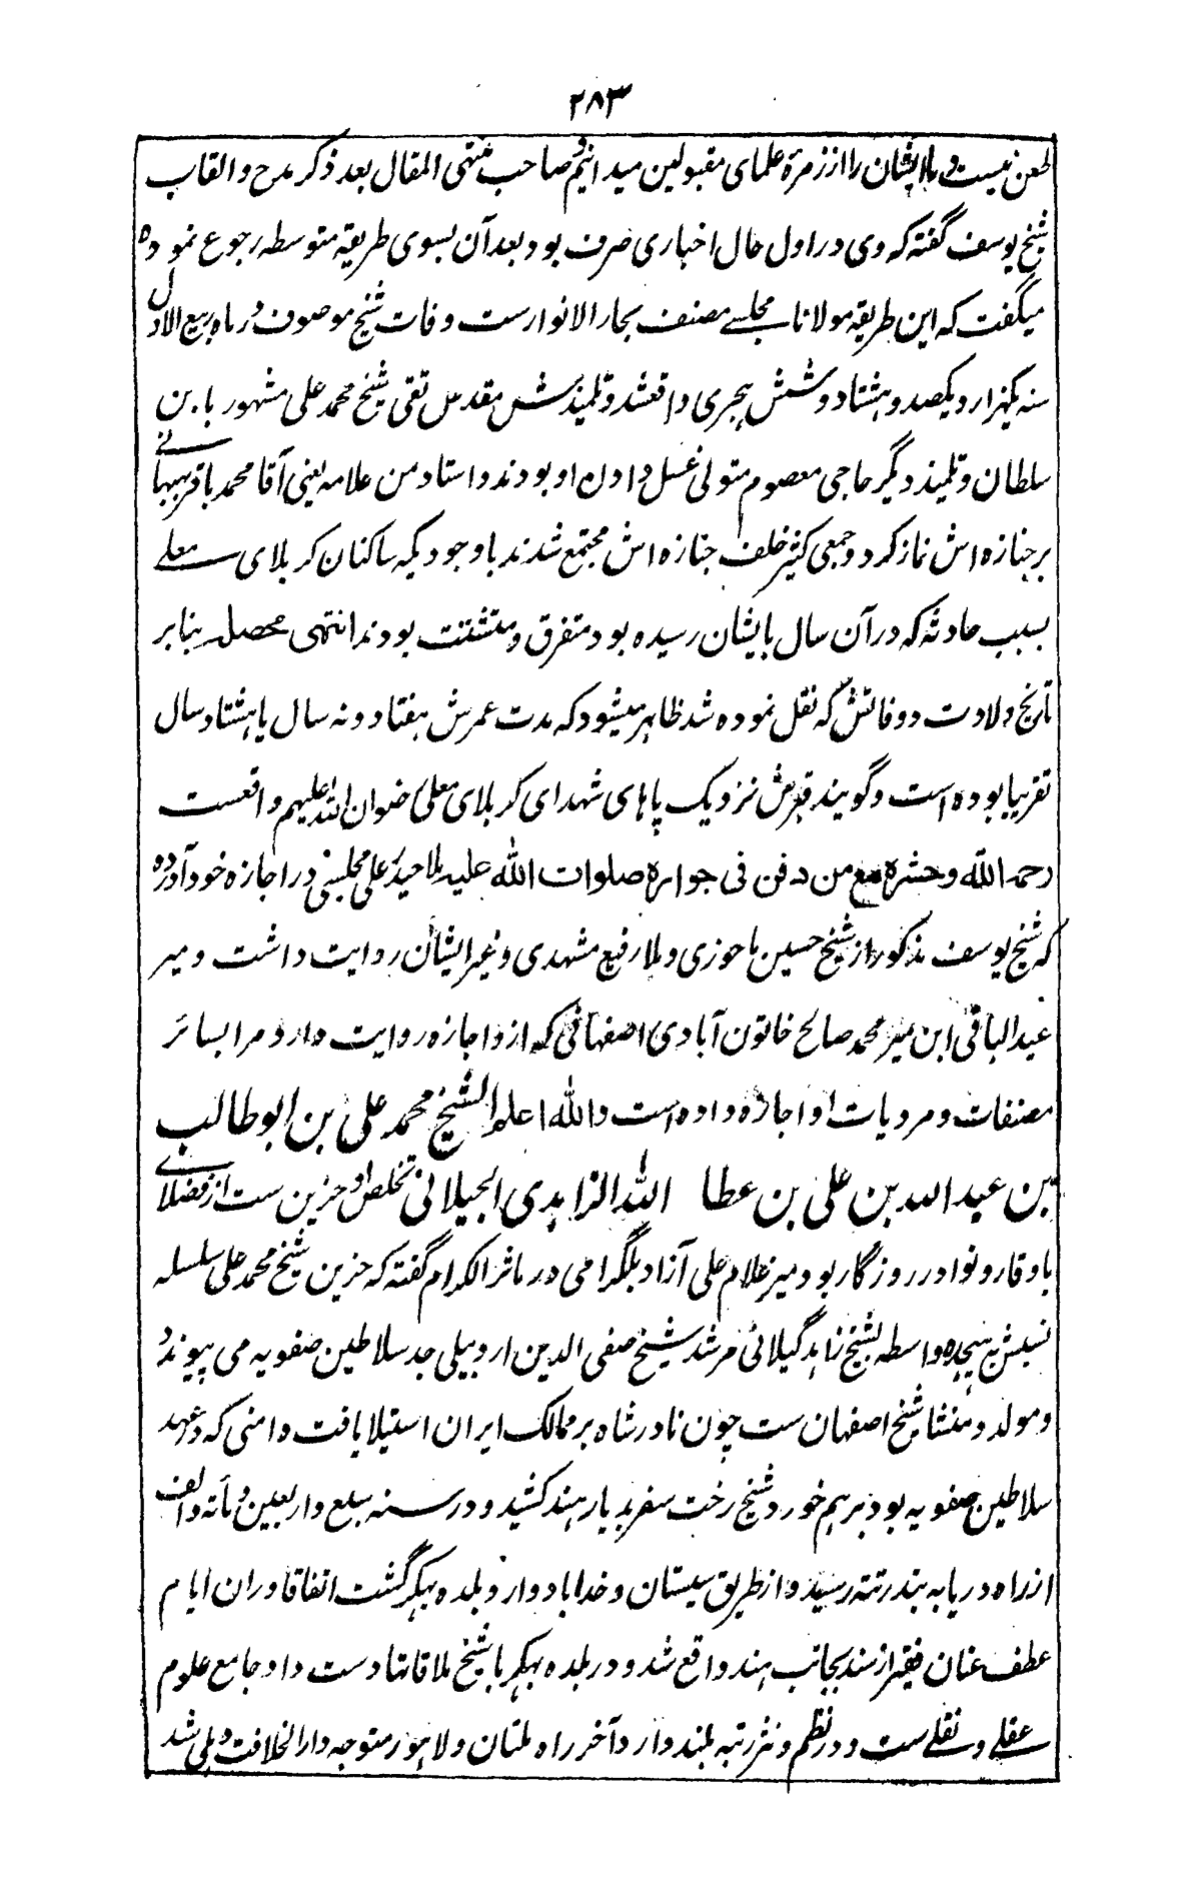 ۲۸۳
طعن نیست و ما ایشان را از زمرۀ علمای مقبولین میدانیم و صاحب منتهی المقال بعد ذکر مدح و القاب
شیخ یوسف گفته که وی در اول حال اخباری صرف بود بعد آن بسوی طریقه متوسطه رجوع نموده
میگفت که این طریقه مولانا مجلسے مصنف بحار الانوارست وفات شیخ موصوف در ماه ربیع الاول
سنه یکهزار و یکصد و هشتاد و شش هجری واقعشد و تلمیذش مقدس تقی شیخ محمد علی مشهور بابن
سلطان و تلمیذ دیگر حاجی معصوم متولی غسل دادن او بودند و استاد من علامه یعنی آقا محمد باقر بهبهانے
بر جنازه اش نماز کرد و جمعی کثیر خلف جنازه اش مجتمع شدند باوجودیکه ساکنان کربلای معلے
بسبب حادثه که در آن سال بایشان رسیده بود متفرق و متشتت بودند انتهی محصله بنا بر
تاریخ ولادت و وفاتش که نقل نموده شد ظاهر میشود که مدت عمرش هفتاد و نه سال یا هشتاد سال
تقریبا بوده است و گویند قبرش نزدیک پاهای شهدای کربلای معلی رضوان الله علیهم واقعست
رحمه الله وحشره مع من دفن فی جواره صلوات الله علیه ملا حیدر علی مجلسی در اجازه خود آورده
که شیخ یوسف مذکور از شیخ حسین ماحوزی و ملا رفیع مشهدی و غیر ایشان روایت داشت و میر
عبد الباقی ابن میر محمد صالح خاتون آبادی اصفهانی که ازو اجازه روایت دارد مرا بسائر
مصنفات و مرویات او اجازه داده است والله اعلم الشیخ محمد علی بن ابو طالب
بن عبد الله بن علی بن عطا الله الزاهدی الجیلانی تخلص او حزین ست از فضلائے
با وقار و نوادر روزگار بود میر غلام علی آزاد بلگرامی در ماثر الکرام گفته که حزین شیخ محمد علی سلسله
نسبش به هیجده واسطه بشیخ زاهد گیلانی مرشد شیخ صفی الدین اردبیلی جد سلاطین صفویه می پیوندد
و مولد و منشا شیخ اصفهان ست چون نادر شاه بر ممالک ایران استیلا یافت و امنی که در عهد
سلاطین صفویه بود برهم خورد شیخ رخت سفر بدیار هند کشید و در سنه سبع و اربعین و مأته و الف
از راه دریا به بندر تته رسید و از طریق سیستان و خداباد وارد بلده بهکر گشت اتفاقا دران ایام
عطف عنان فقیر از سند بجانب هند واقع شد و در بلده بهکر با شیخ ملاقاتها دست داد جامع علوم
عقلے و نقلے ست و در نظم و نثر رتبه بلند دارد آخر راه ملتان و لاهور متوجه دار الخلافت دهلی شد